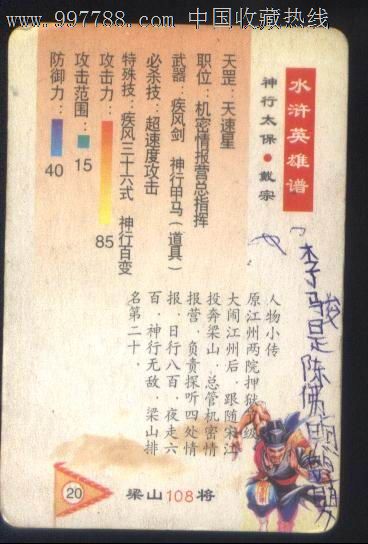 www.997788.com 中国收藏热线
水浒英雄谱
神行太保●戴宗
天罡：天速星
职位：机密情报营总指挥
武器：疾风剑 神行甲马（道具）
必杀技：超速度攻击
特殊技：疾风三十六式 神行百变
攻击力：85
攻击范围：15
防御力：40
人物小传
原江州两院押狱节级
大闹江州后，跟随宋江
投奔梁山，总管机密情
报营，负责探听四处情
报，日行八百，夜走六
百，神行无敌，梁山排
名第二十。
李骏是陈佛
20
梁山108将